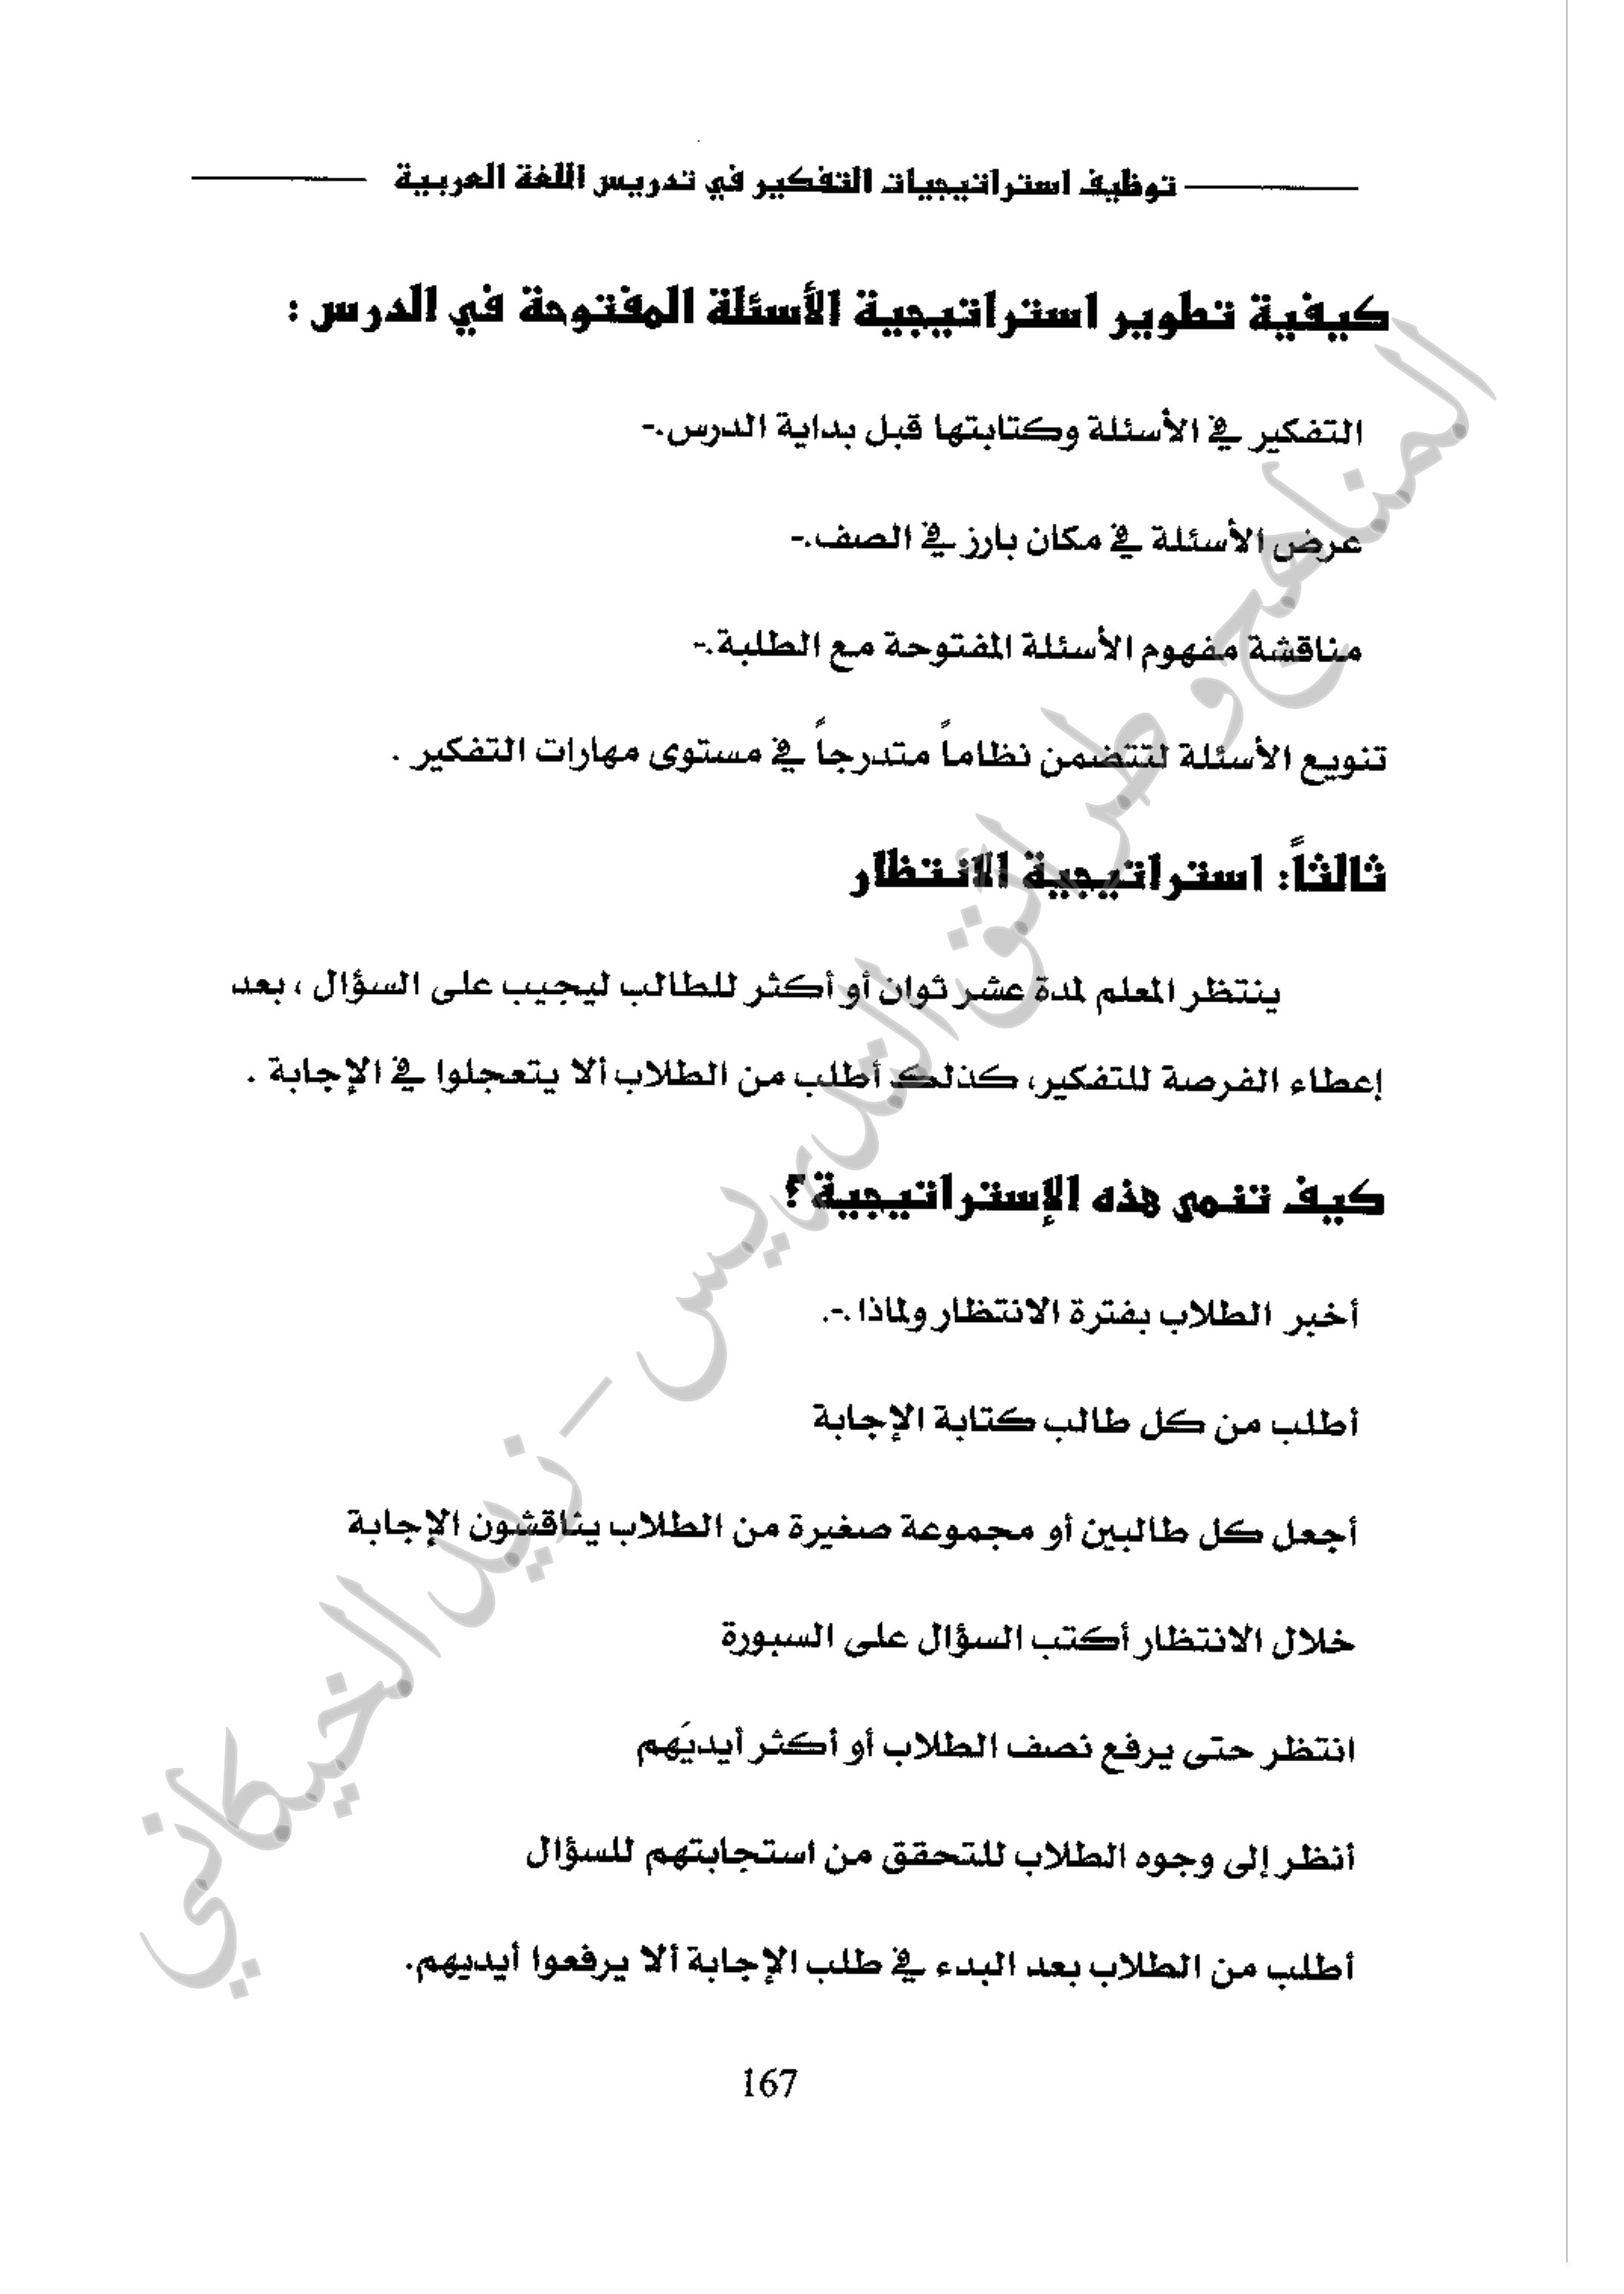 توظيف استراتيجيات التفكير في تدريس اللغة العربية
كيفية تطوير استراتيجية الأسئلة المفتوحة في الدرس :
التفكير في الأسئلة وكتابتها قبل بداية الدرس.-
عرض الأسئلة في مكان بارز في الصف.-
مناقشة مفهوم الأسئلة المفتوحة مع الطلبة.-
تنويع الأسئلة لتتضمن نظاماً متدرجاً في مستوى مهارات التفكير .
ثالثاً: استراتيجية الانتظار
ينتظر المعلم لمدة عشر ثوان أو أكثر للطالب ليجيب على السؤال ، بعد
إعطاء الفرصة للتفكير، كذلك أطلب من الطلاب ألا يتعجلوا في الإجابة .
كيف تنمى هذه الإستراتيجية؟
أخبر الطلاب بفترة الانتظار ولماذا.-.
أطلب من كل طالب كتابة الإجابة
أجعل كل طالبين أو مجموعة صغيرة من الطلاب يناقشون الإجابة
خلال الانتظار أكتب السؤال على السبورة
انتظر حتى يرفع نصف الطلاب أو أكثر أيديَهم
أنظر إلى وجوه الطلاب للتحقق من استجابتهم للسؤال
أطلب من الطلاب بعد البدء في طلب الإجابة ألا يرفعوا أيديهم.
167
المناهج وطرائق التدريس - زيد الخيكاني